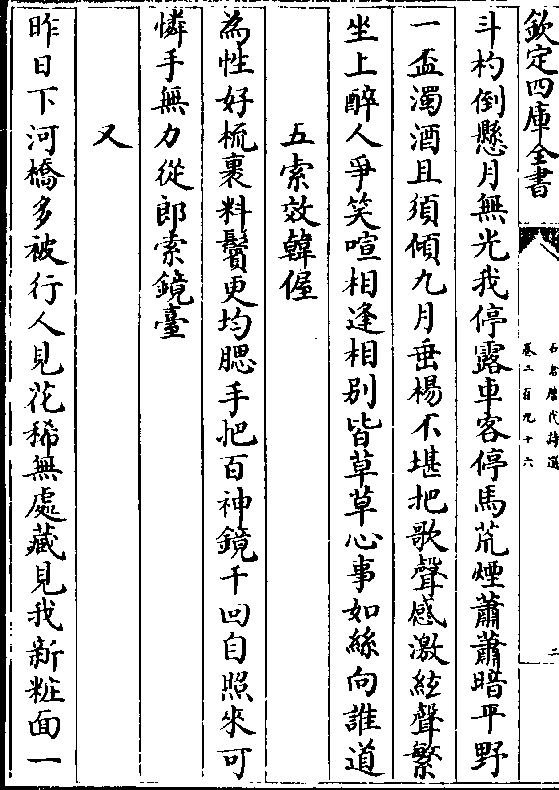 欽定四庫全書
石倉歷代詩選
卷二百九十六
二
斗杓倒懸月無光我停露車客停馬荒煙蕭蕭暗平野
一盃濁酒且須傾九月垂楊不堪把歌聲感激絃聲繁
坐上醉人爭笑喧相逢相别皆草草心事如絲向誰道
五索效韓偓
為性好梳裹料鬢更均腮手把百神鏡千回自照來可
憐手無力從郎索鏡臺
又
昨日下河橋多被行人見花稀無處藏見我新粧面一